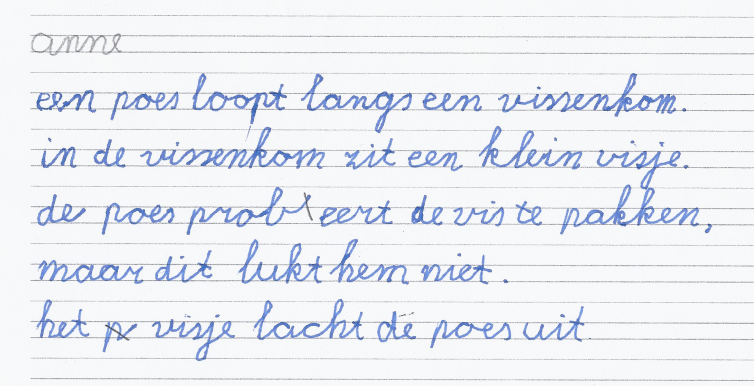 anne
een poes loopt langs een vissenkom.
in de vissenkom zit een klein visje.
de poes probeert de vis te pakken,
maar dit lukt hem niet.
het visje lacht de poes uit